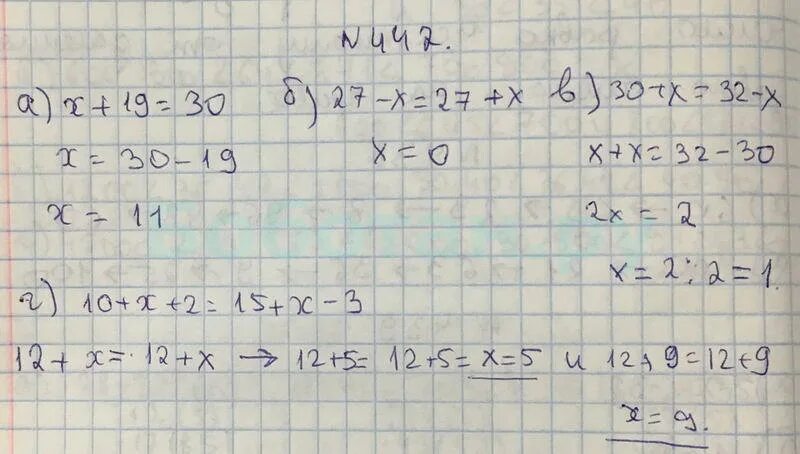 N442.
а) x + 19 = 30 б) 27 - x = 27 + x в) 30 + x = 32 - x
x = 30 - 19 x = 0 x + x = 32 - 30
x = 11 2x = 2
x = 2 : 2 = 1.
г) 10 + x + 2 = 15 + x - 3
12 + x = 12 + x → 12 + 5 = 12 + 5 = x = 5 и 12 + 9 = 12 + 9
x = 9.